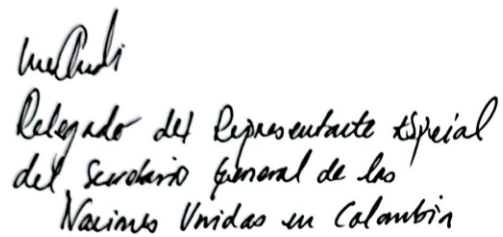 Delegado del Representante Especial
del Secretario General de las
Naciones Unidas en Colombia